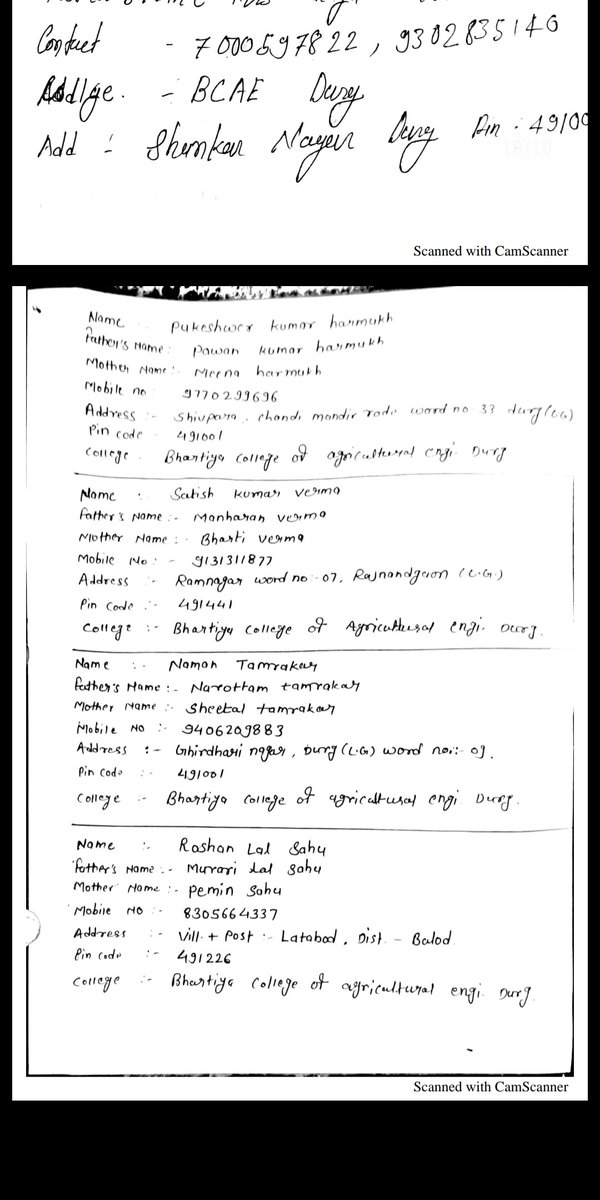 Contact - 7000597822, 9302835140
Collge. - BCAE Durg
Add :- Shankar Nagar Durg Pin : 49100
Scanned with CamScanner
Name :- Pukeshwer kumar harmukh
Father's Name : Pawan kumar harmukh
Mother Name :- Meena harmukh
Mobile no 9770299696
Address :- Shivpara, chandi mandir rode word no 33 durg (C.G)
Pin code 491001
College Bhartiya college of agricultural engi. Durg
Name : Satish kumar verma
Father's Name :- Manharan verma
Mother Name :- Bharti verma
Mobile No :- 9131311877
Address :- Ramnagar word no :- 07, Rajnandgaon (C.G.)
Pin Code :- 491441
College :- Bhartiya College of Agricultural engi. Durg.
Name :- Naman Tamrakar
Father's Name :- Narottam tamrakar
Mother Name :- Sheetal tamrakar
Mobile No :- 9406209883
Address :- Ghirdhari nagar, Durg (C.G) word no:- 09.
Pin Code :- 491001
College :- Bhartiya College of agricultural engi Durg.
Name :- Roshan Lal Sahu
Father's Name :- Murari Lal Sahu
Mother Name :- Pemin Sahu
Mobile No :- 8305664337
Address :- Vill. + Post :- Latabod, Dist. - Balod
Pin Code :- 491226
College :- Bhartiya College of agricultural engi. Durg.
Scanned with CamScanner